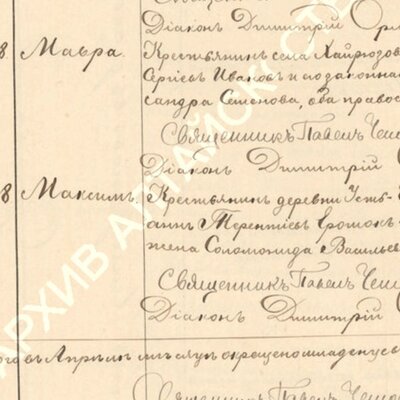 Діаконъ Димитрій
8 Мавра. Крестьянинъ села Хайрюзов
Сергѣевъ Ивановъ и законная
сандра Семенова, оба правос
Священникъ Павелъ
Діаконъ Димитрій
8 Максимъ. Крестьянинъ деревни Усть-
аннъ Терентіевъ
жена Соломонида Василье
Священникъ Павелъ
Діаконъ Димитрій
Апрѣлѣ мѣсяцѣ крещено младенцевъ
Священникъ Павелъ
АРХИВ АЛТАЙСК